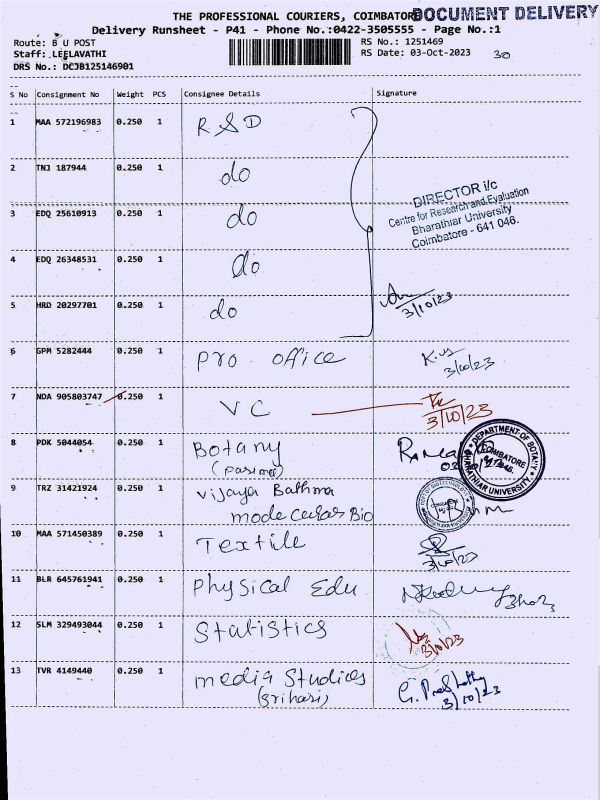 THE PROFESSIONAL COURIERS, COIMBATORE
DOCUMENT DELIVERY
Delivery Runsheet - P41 - Phone No.:0422-3505555 - Page No.:1
Route: B U POST
RS No.: 1251469
Staff: LEELAVATHI
RS Date: 03-Oct-2023 30
DRS No.: DCJB125146901
S No Consignment No Weight PCS Consignee Details Signature
1 MAA 572196983 0.250 1 R&D
2 TNJ 187944 0.250 1 do
DIRECTOR i/c
Centre for Research and Evaluation
Bharathiar University
Coimbatore - 641 046.
3 EDQ 25610913 0.250 1 do
4 EDQ 26348531 0.250 1 do
5 HRD 20297701 0.250 1 do
3/10/23
6 GPM 5282444 0.250 1 PRO office
3/10/23
7 NDA 905803747 0.250 1 VC
3/10/23
8 PDK 5044054 0.250 1 Botany
DEPARTMENT OF BOTANY
COIMBATORE
BHARATHIAR UNIVERSITY
9 TRZ 31421924 0.250 1 Vijaya
Bio
10 MAA 571450389 0.250 1 Textile
3/10/23
11 BLR 645761941 0.250 1 Physical Edu
12 SLM 329493044 0.250 1 Statistics
3/10/23
13 TVR 4149440 0.250 1 media Studices
(Srihari)
3/10/23